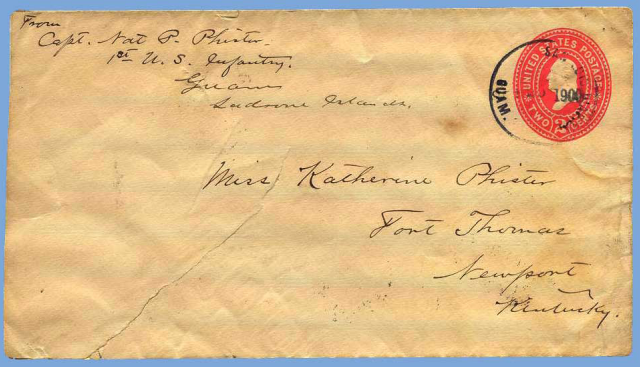 From
Capt. Nat P. Phister.
1st U. S. Infantry.
Guam
Ladrone Islands.
UNITED STATES POSTAGE
TWO 2 CENTS
GUAM.
1900
Miss Katherine Phister
Fort Thomas
Newport
Kentucky.